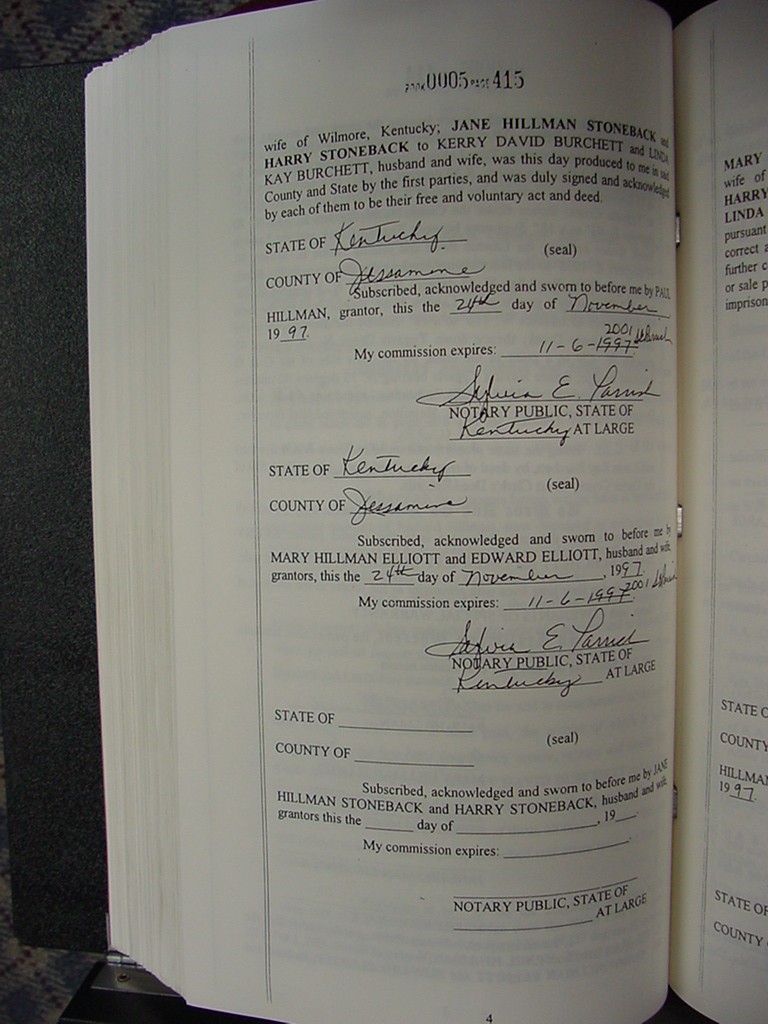 BOOK 0005 PAGE 415
wife of Wilmore, Kentucky; JANE HILLMAN STONEBACK and
HARRY STONEBACK to KERRY DAVID BURCHETT and LINDA
KAY BURCHETT, husband and wife, was this day produced to me in said
County and State by the first parties, and was duly signed and acknowledged
by each of them to be their free and voluntary act and deed.
STATE OF Kentucky
(seal)
COUNTY OF Jessamine
Subscribed, acknowledged and sworn to before me by PAUL
HILLMAN, grantor, this the 24th day of November
1997.
2001
My commission expires: 11-6-1997
Sylvia E. Parrish
NOTARY PUBLIC, STATE OF
Kentucky AT LARGE
STATE OF Kentucky
(seal)
COUNTY OF Jessamine
Subscribed, acknowledged and sworn to before me by
MARY HILLMAN ELLIOTT and EDWARD ELLIOTT, husband and wife,
grantors, this the 24th day of November, 1997.
2001
My commission expires: 11-6-1997
Sylvia E. Parrish
NOTARY PUBLIC, STATE OF
Kentucky AT LARGE
STATE OF
(seal)
COUNTY OF
Subscribed, acknowledged and sworn to before me by JANE
HILLMAN STONEBACK and HARRY STONEBACK, husband and wife,
grantors this the ______ day of ____________, 19___.
My commission expires:
NOTARY PUBLIC, STATE OF
AT LARGE
4
MARY
wife of
HARRY
LINDA
pursuant
correct
further
or sale
STATE
COUNTY
1997
STATE OF
COUNTY